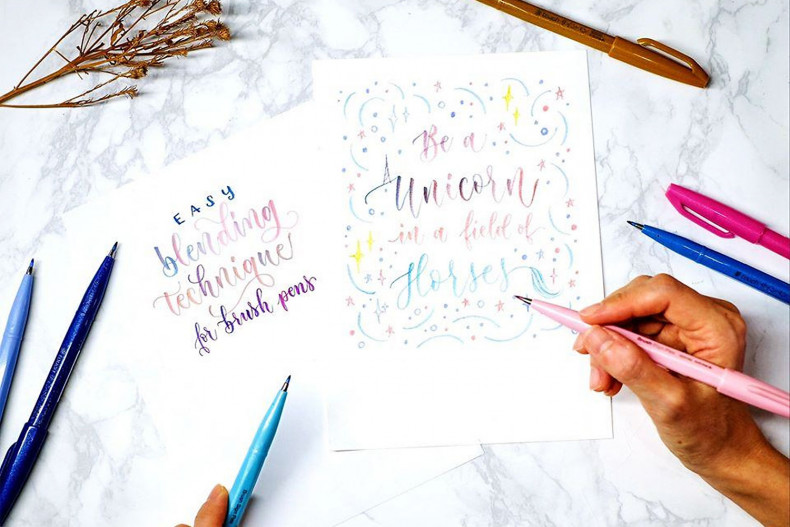 EASY
blending
technique
for brush pens
Be a
Unicorn
in a field of
Horses